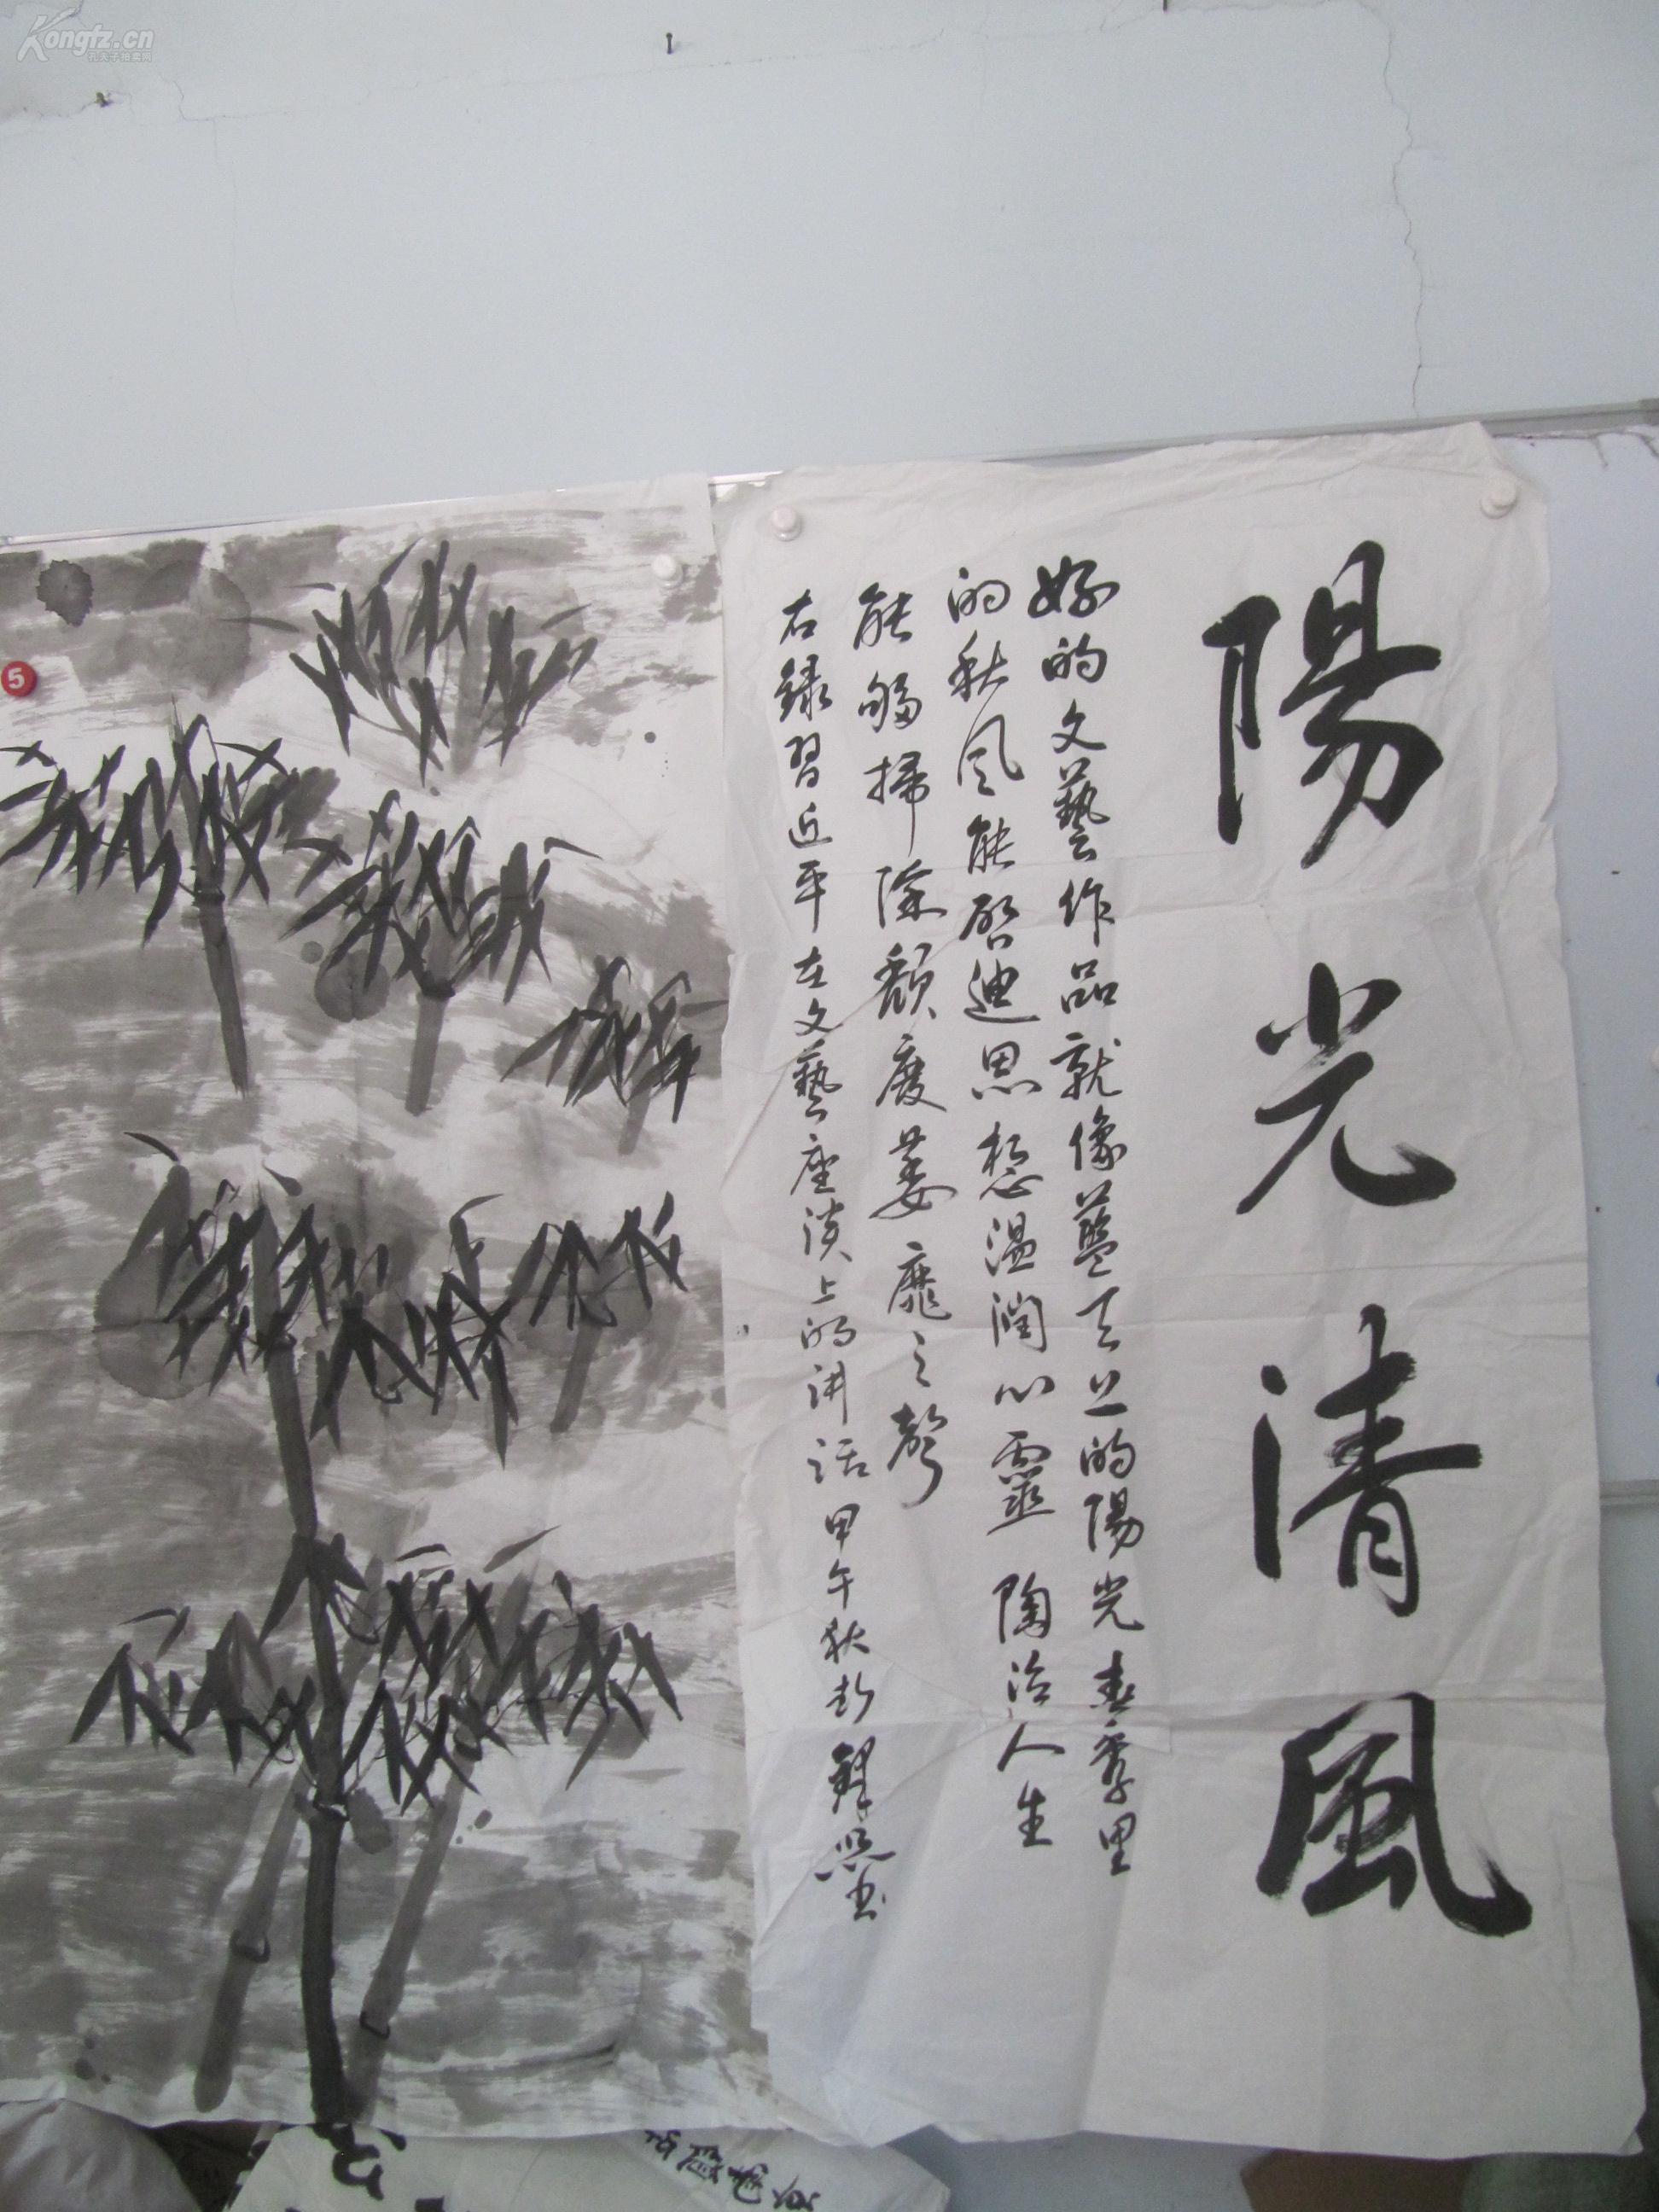 陽光清風
好的文藝作品就像藍天上的陽光春季里
的秋风能啓迪思想温潤心靈陶冶人生
能够掃除頹廢萎靡之聲
右錄習近平在文藝座談上的讲话甲午秋
Kongfz.cn
5